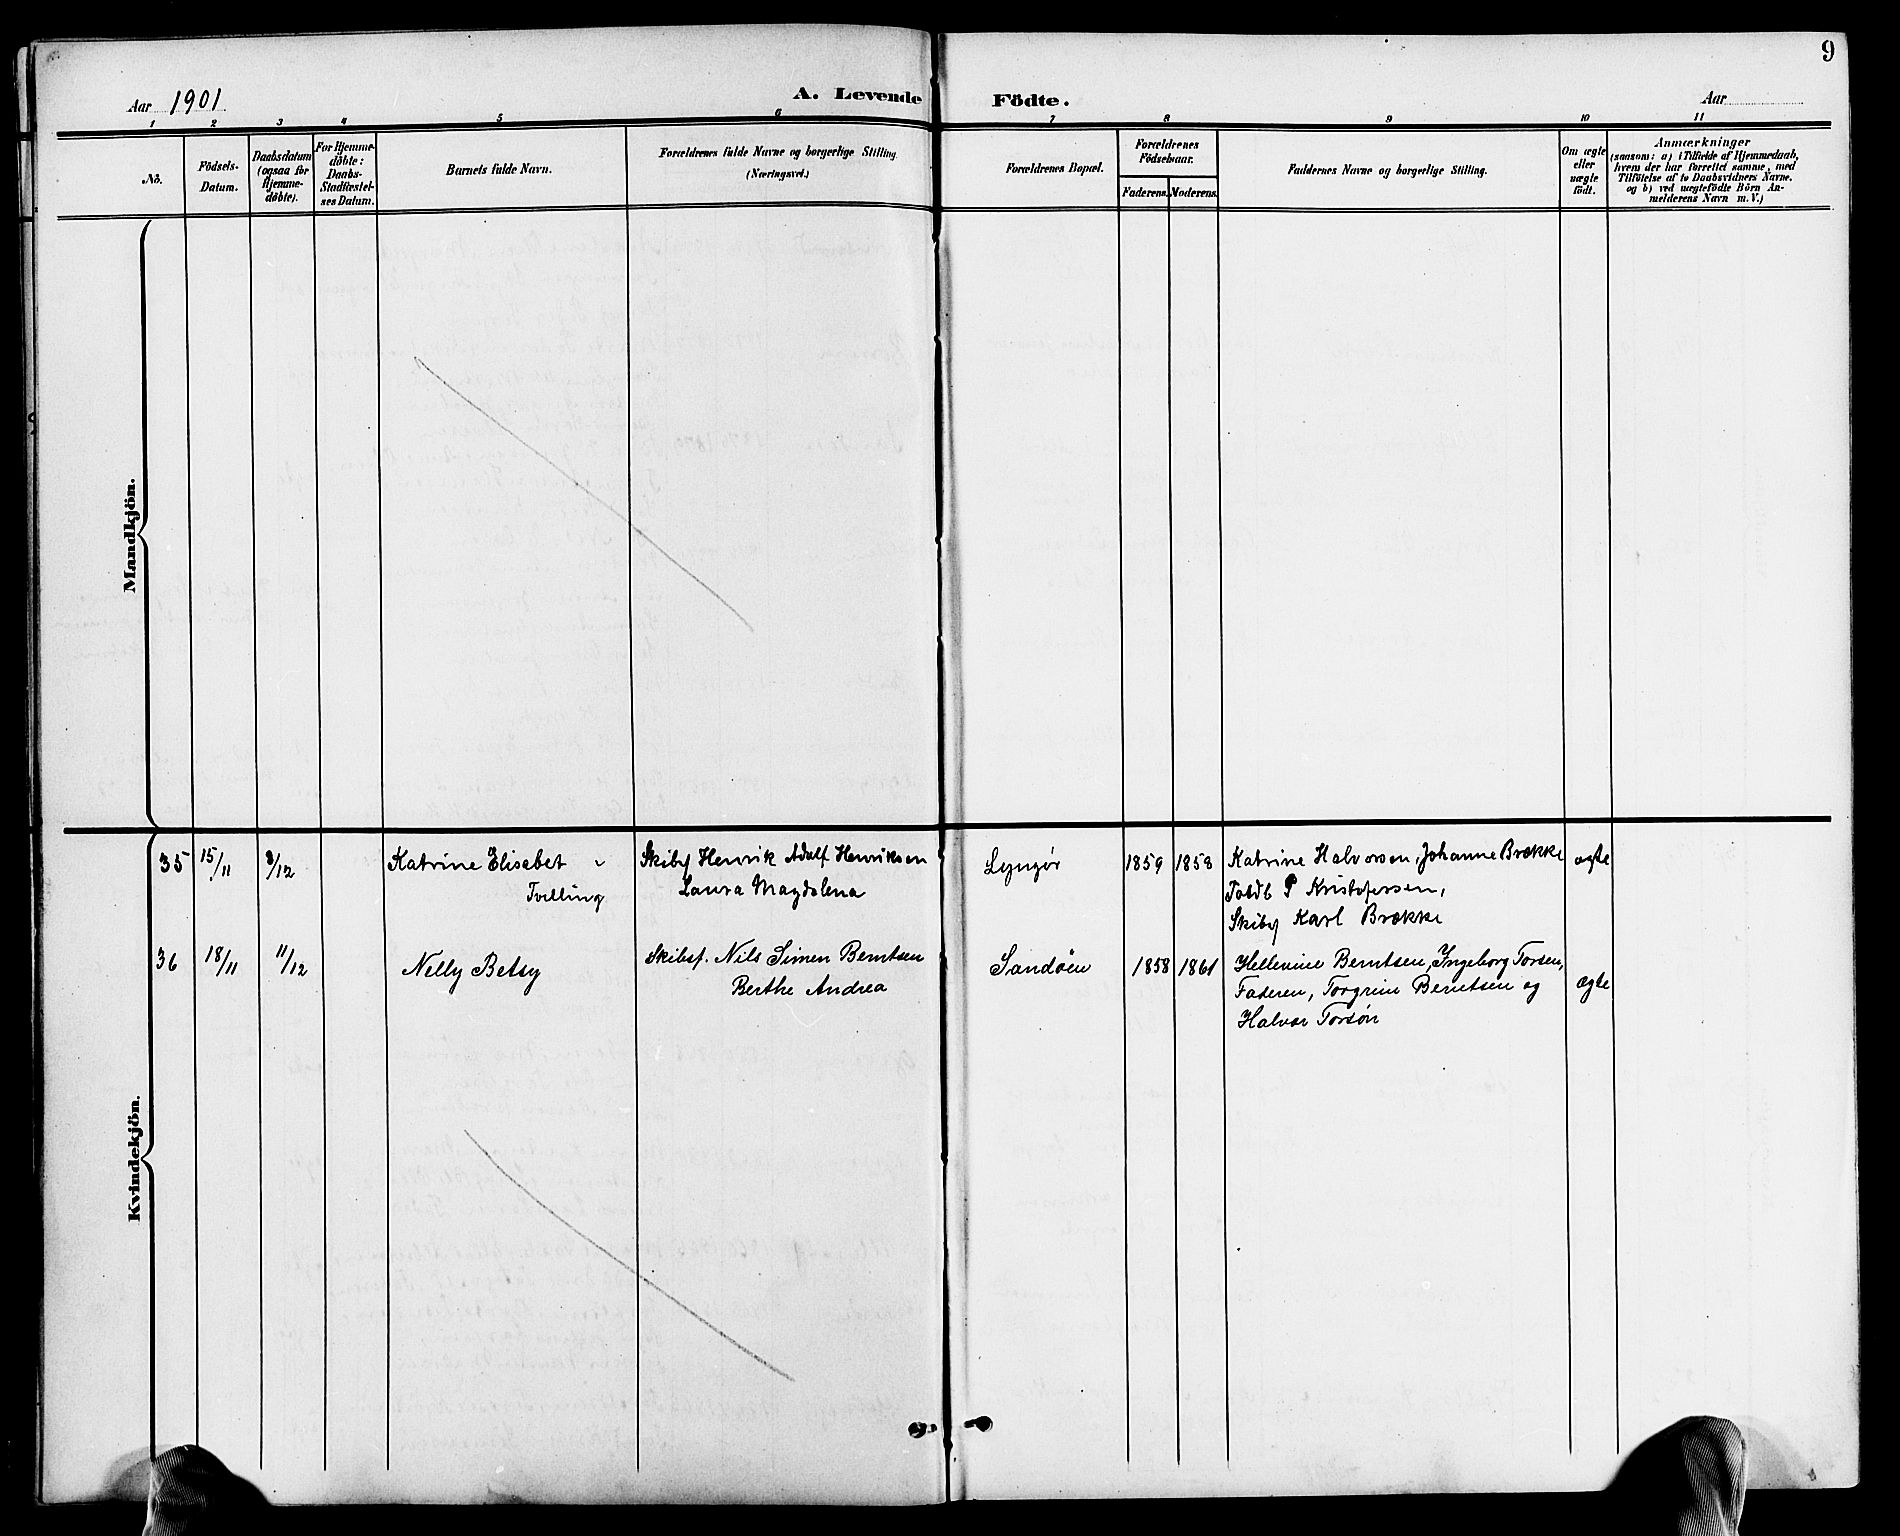 9
Aar 1901
A. Levende Födte.
Aar
1 2 3 4 5 6 7 8 9 10 11
No.
Födsels-
Datum.
Daabsdatum
(ogsaa for
Hjemme-
døbte).
For Hjemme-
døbte:
Daabs-
Stadfæstel-
ses Datum.
Barnets fulde Navn.
Forældrenes fulde Navne og borgerlige Stilling.
(Næringsvei.)
Forældrenes Bopæl.
Forældrenes
Födselsaar.
Faderens. Moderens.
Faddernes Navne og borgerlige Stilling.
Om ægte
eller
uægte
født.
Anmærkninger
(saasom: a) i Tilfælde af Hjemmedaab,
hvem der har forrettet samme, med
Tilføielse af to Daabsvidners Navne.
og b) ved uægtefödte Börn An-
melderens Navn m. V.)
Mandkjön.
Kvindekjön.
35 15/11 8/12 Katrine Elisabet Skibsf Henrik Adolf Henriksen Lyngør 1859 1858 Katrine Halvorsen, Johanne Brække ægte
Tvilling Laura Magdalena Toldb P Kristofersen,
Skibsf Karl Brække
36 18/11 11/12 Nelly Betsy Skibsf. Nils Simen Berntsen Sandøen 1858 1861 Hellevine Berntsen, Ingeborg Torsen,
Berthe Andrea Faderen, Torgrim Berntsen og ægte
Halvor Torsøn